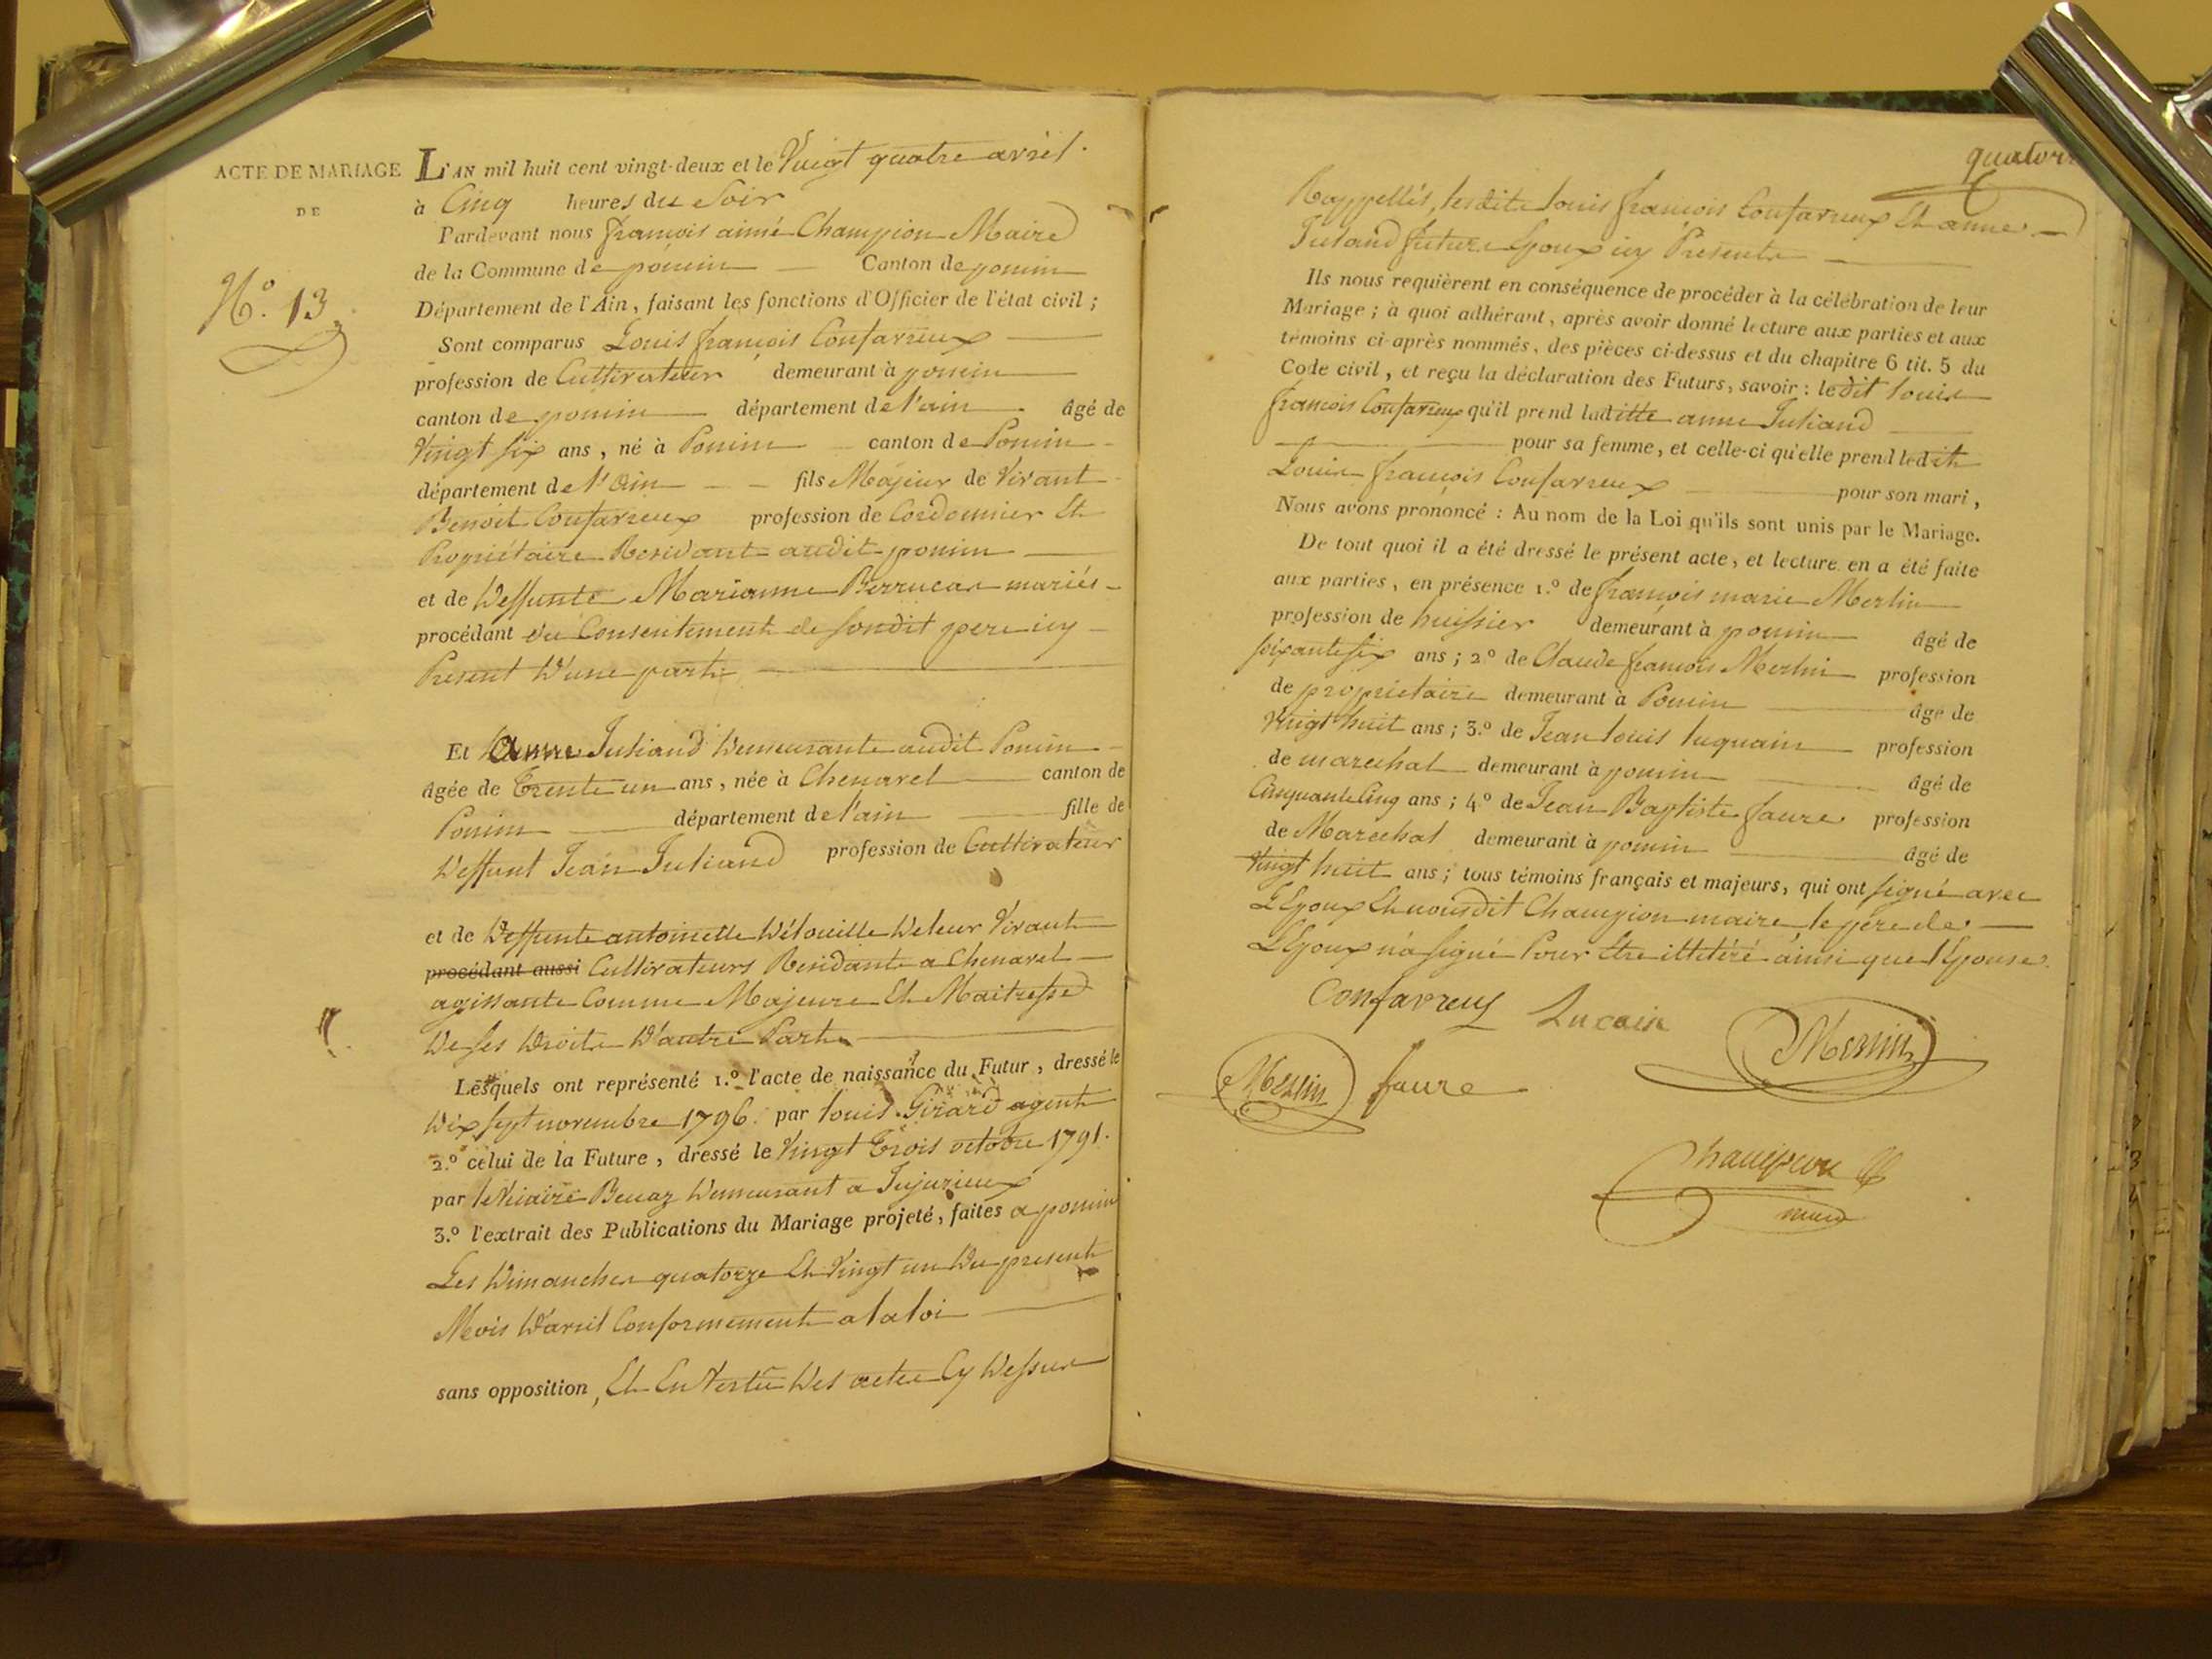 ACTE DE MARIAGE
DE
N.º 13
L'AN mil huit cent vingt-deux et le Vingt quatre avril.
à Cinq heures du Soir
Pardevant nous françois aimé Champion Maire
de la Commune de poncin Canton de poncin
Département de l'Ain, faisant les fonctions d'Officier de l'état civil ;
Sont comparus Louis françois Confavreux
profession de Cultivateur demeurant à poncin
canton de poncin département de l'ain âgé de
Vingt six ans, né à Poncin canton de Poncin
département de l'ain fils Majeur de Vivant
Benoit Confavreux profession de Cordonnier Et
Propriétaire Residant audit poncin
et de Deffunte Marianne Berrucas mariés
procédant du Consentement de sondit pere icy
Présent D'une part
Et anne Juliand Demeurante audit Poncin
âgée de Trente un ans, née à Chenavel canton de
Poncin département de l'ain fille de
Deffunt Jean Juliand profession de Cultivateur
et de Deffunte antoinette Délouille De leur Vivant
procédant aussi Cultivateurs Residants a Chenavel
agissante Comme Majeure Et Maitresse
De ses Droits D'autre Part
Lesquels ont représenté 1.º l'acte de naissance du Futur, dressé le
Dix sept novembre 1796. par louis Girard agent
2.º celui de la Future, dressé le Vingt Trois octobre 1791.
par le Vicaire Benaz Demeurant a Jujurieux
3.º l'extrait des Publications du Mariage projeté, faites a poncin
Les Dimanches quatorze Et Vingt un Du present
Mois D'avril Conformement a la loi
sans opposition, Et En Vertu Des actes Cy Dessus
Rappellés, lesdits louis françois Confavreux Et anne
Juliand future Epoux icy Présents
Ils nous requièrent en conséquence de procéder à la célébration de leur
Mariage ; à quoi adhérant, après avoir donné lecture aux parties et aux
témoins ci-après nommés, des pièces ci-dessus et du chapitre 6 tit. 5 du
Code civil, et reçu la déclaration des Futurs, savoir : ledit louis
françois Confavreux qu'il prend laditte anne Juliand
pour sa femme, et celle-ci qu'elle prend ledit
Louis françois Confavreux pour son mari,
Nous avons prononcé : Au nom de la Loi qu'ils sont unis par le Mariage.
De tout quoi il a été dressé le présent acte, et lecture en a été faite
aux parties, en présence 1.º de françois marie Merlin
profession de huissier demeurant à poncin âgé de
soixante six ans ; 2.º de Claude françois Merlin profession
de propriétaire demeurant à Poncin âgé de
Vingt huit ans ; 3.º de Jean louis luquain profession
de marechal demeurant à poncin âgé de
Cinquante Cinq ans ; 4.º de Jean Baptiste faure profession
de Marechal demeurant à poncin âgé de
Vingt huit ans ; tous témoins français et majeurs, qui ont signé avec
L'Epoux Et nousdit Champion maire le père de
L'Epoux n'a signé Pour Etre illetéré ainsi que l'Epouse.
Confavreux Lucain Merlin
Merlin faure
Champion
maire